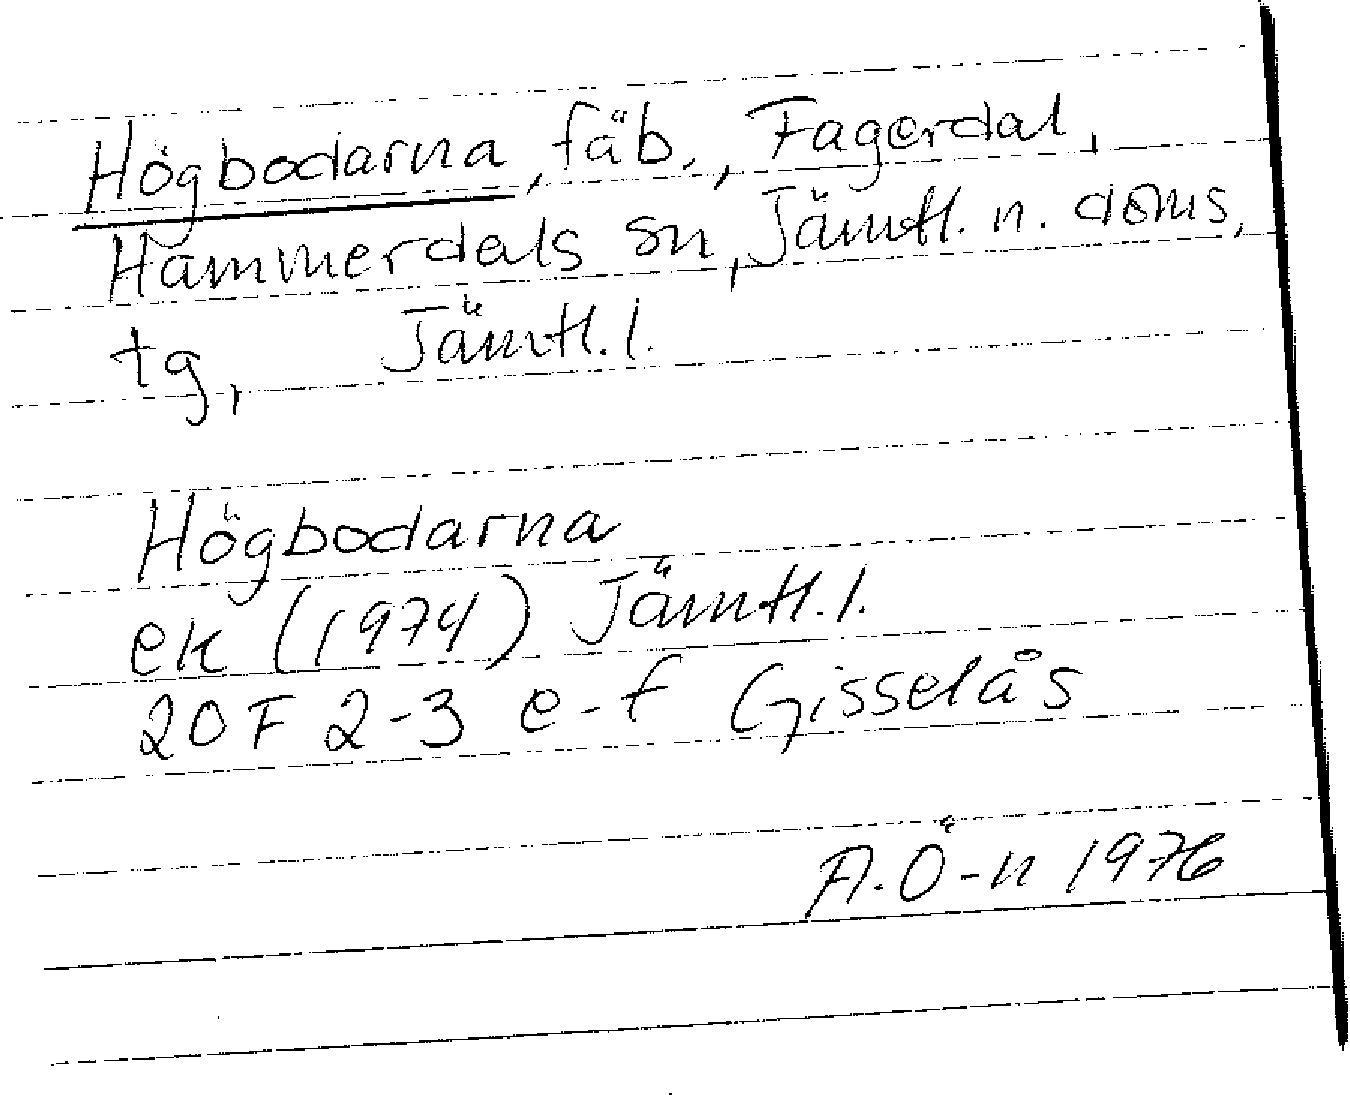 Högbodarna, fäb., Fagerdal,
Hammerdals sn, Jämtl. n. doms.
tg, Jämtl. l.
Högbodarna
ek (1974) Jämtl. l.
20F 2-3 e-f Gisselås
A. Ö-n 1976